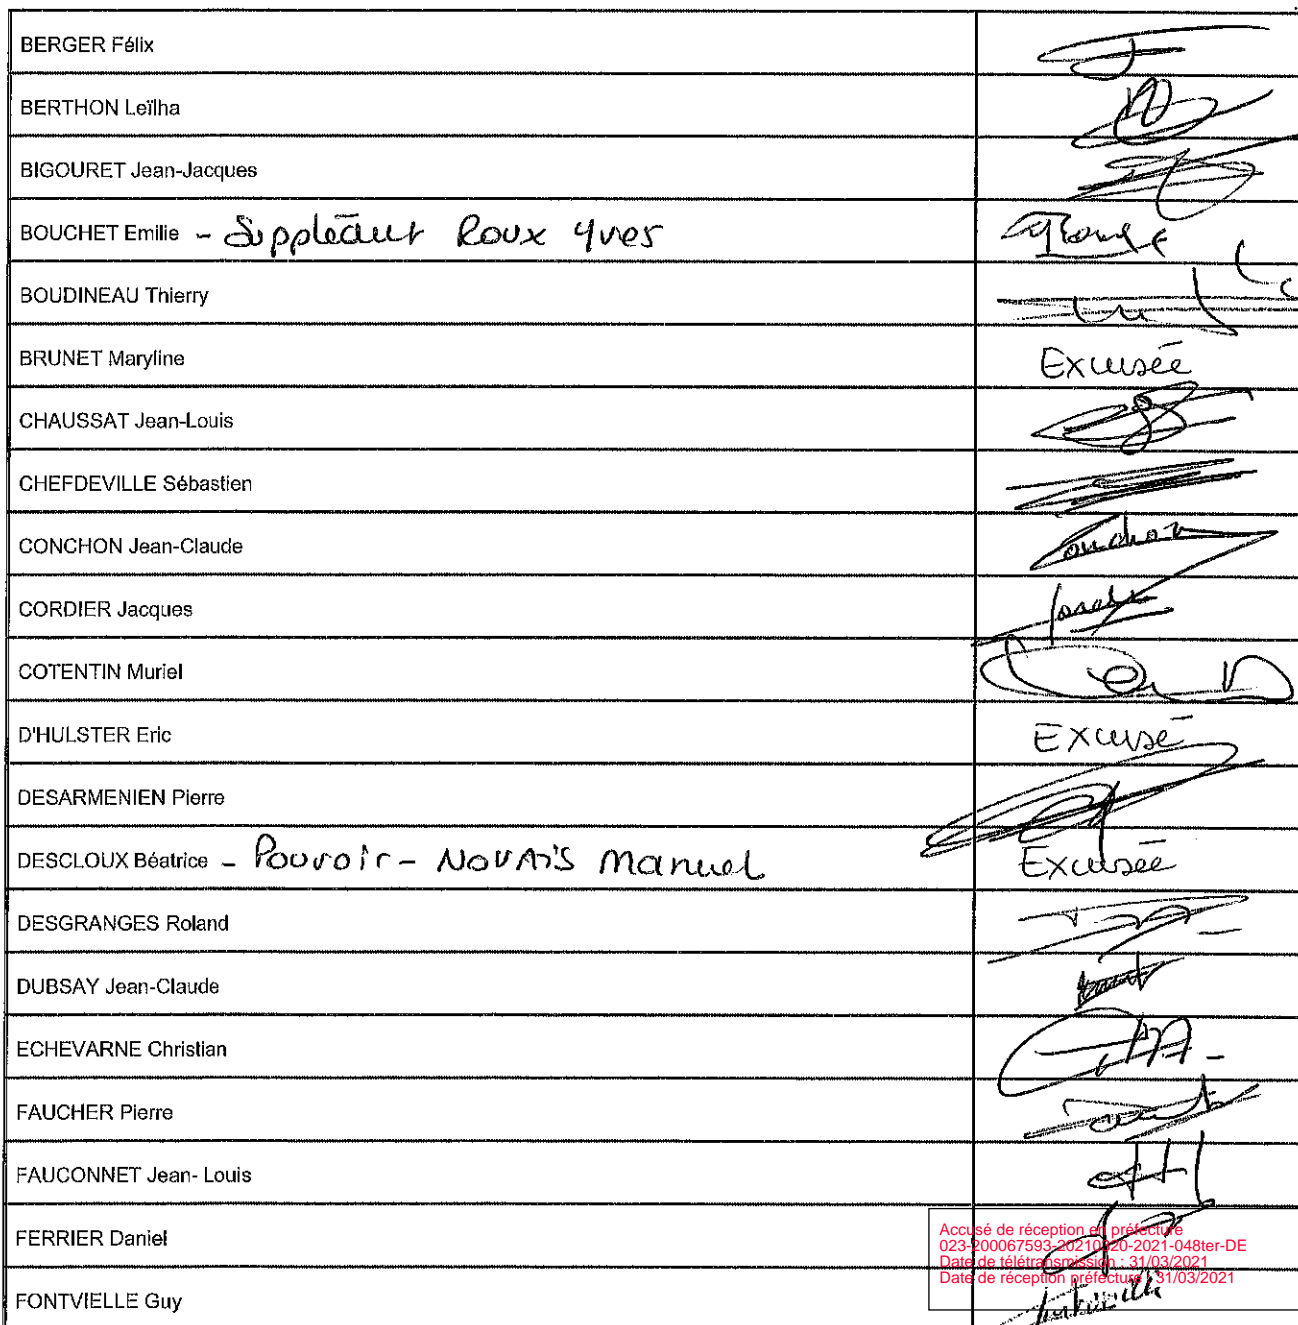 BERGER Félix
BERTHON Leïlha
BIGOURET Jean-Jacques
BOUCHET Emilie - Suppléant Roux Yves
BOUDINEAU Thierry
BRUNET Maryline Excusée
CHAUSSAT Jean-Louis
CHEFDEVILLE Sébastien
CONCHON Jean-Claude Conchon
CORDIER Jacques
COTENTIN Muriel
D'HULSTER Eric Excusé
DESARMENIEN Pierre
DESCLOUX Béatrice - Pouvoir - NOVAIS Manuel Excusée
DESGRANGES Roland
DUBSAY Jean-Claude
ECHEVARNE Christian
FAUCHER Pierre
FAUCONNET Jean- Louis
FERRIER Daniel
Accusé de réception en préfecture
023-200067593-20210320-2021-048ter-DE
Date de télétransmission : 31/03/2021
Date de réception préfecture : 31/03/2021
FONTVIELLE Guy